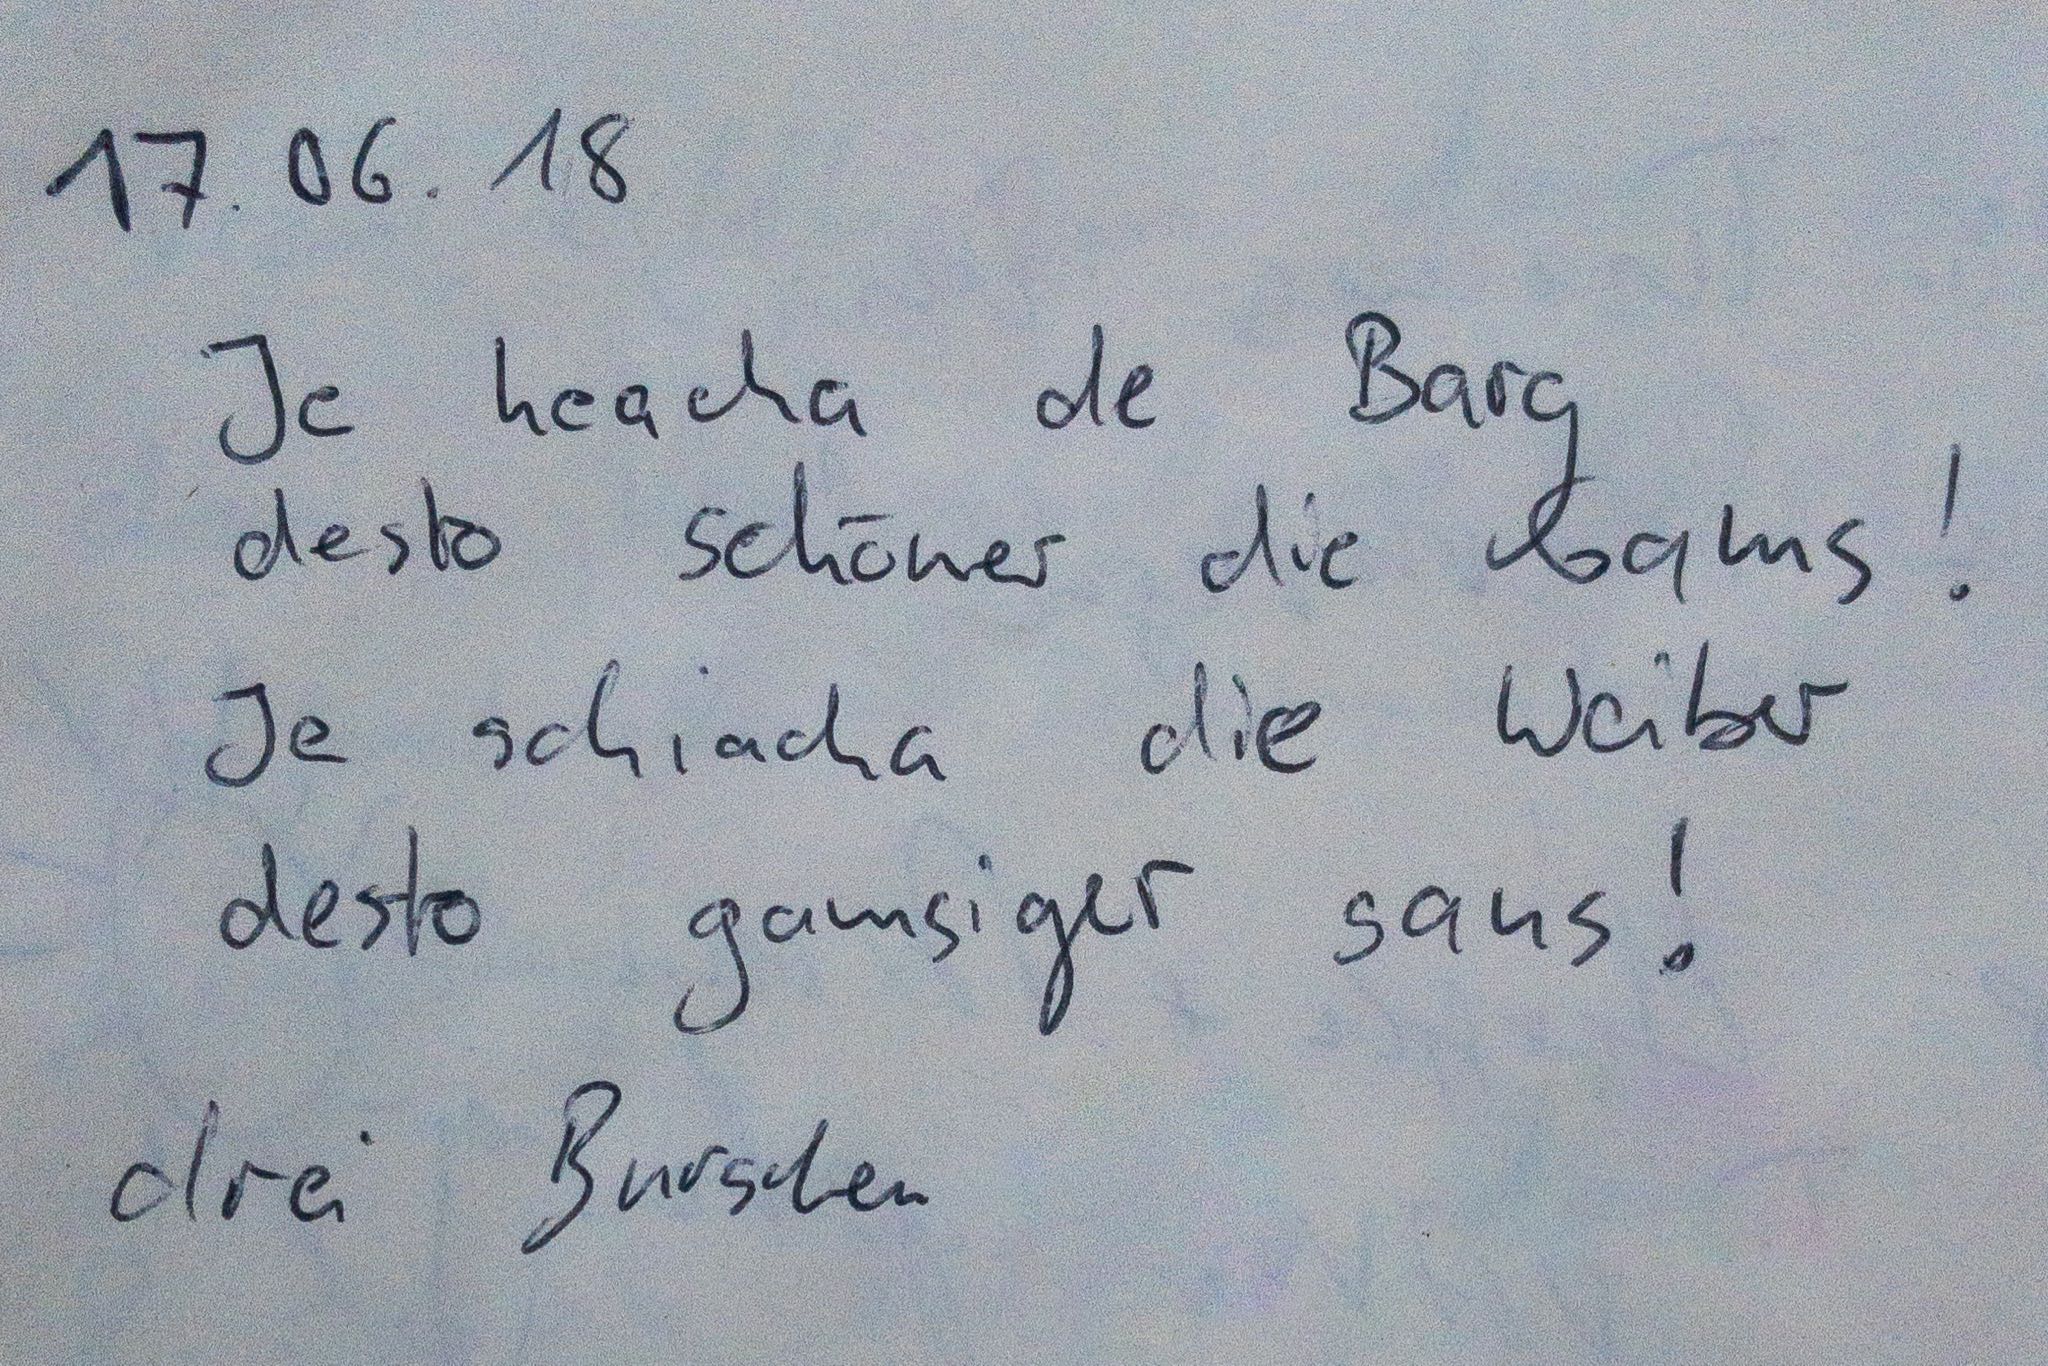 17.06.18
Je heacha de Barg
desto schöner die Gams!
Je schiacha die Weiber
desto gamsiger sans!
drei Burschen